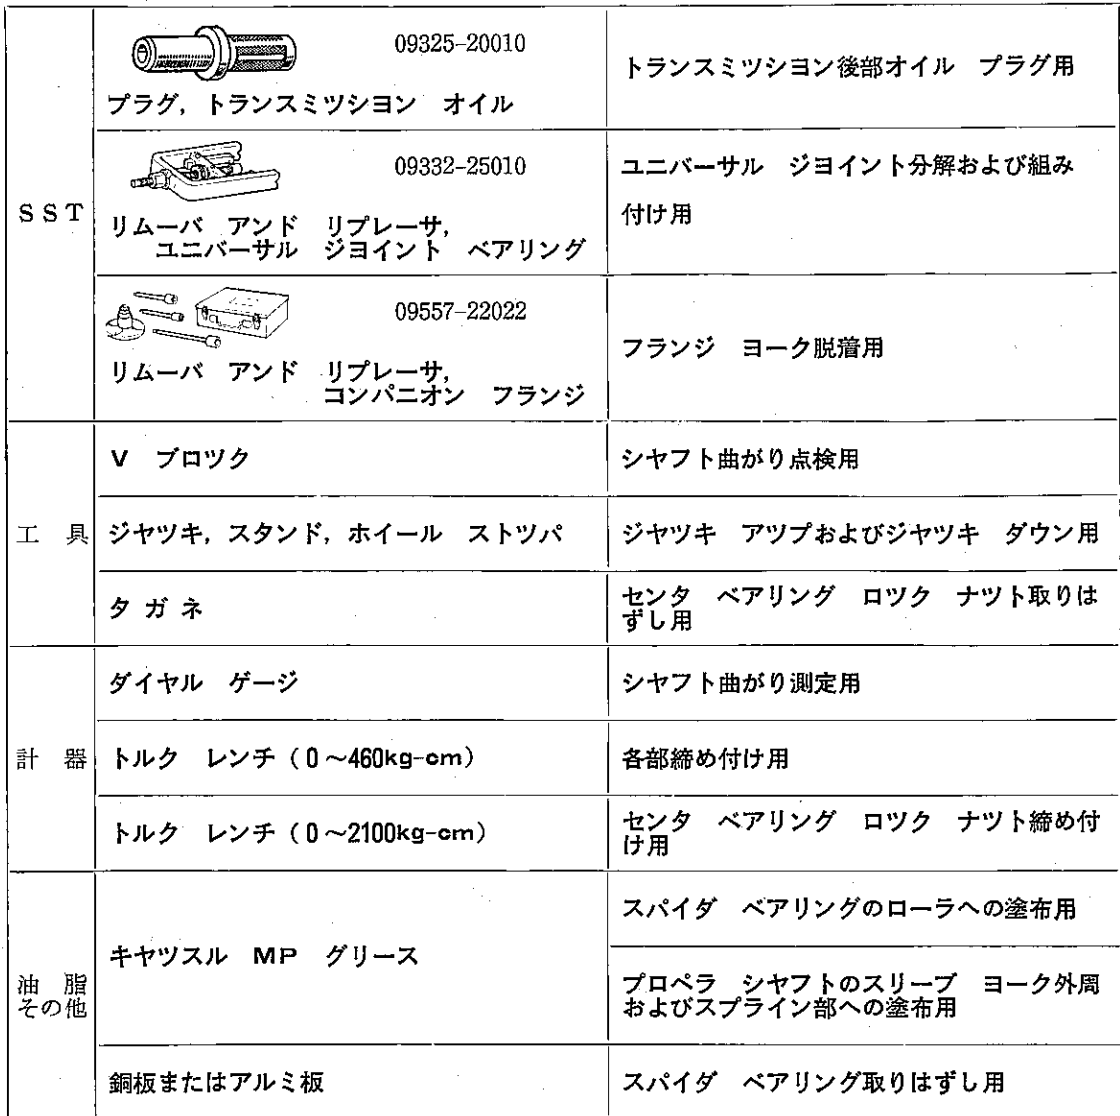 09325-20010
プラグ, トランスミツシヨン オイル
トランスミツシヨン後部オイル プラグ用
SST
09332-25010
リムーバ アンド リプレーサ,
ユニバーサル ジヨイント ベアリング
ユニバーサル ジヨイント分解および組み
付け用
09557-22022
リムーバ アンド リプレーサ,
コンパニオン フランジ
フランジ ヨーク脱着用
工 具
V ブロツク
シヤフト曲がり点検用
ジヤツキ, スタンド, ホイール ストツパ
ジヤツキ アツプおよびジヤツキ ダウン用
タガネ
センタ ベアリング ロツク ナツト取りは
ずし用
計 器
ダイヤル ゲージ
シヤフト曲がり測定用
トルク レンチ (0~460kg-cm)
各部締め付け用
トルク レンチ (0~2100kg-cm)
センタ ベアリング ロツク ナツト締め付
け用
油 脂
その他
キヤツスル MP グリース
スパイダ ベアリングのローラへの塗布用
プロペラ シヤフトのスリーブ ヨーク外周
およびスプライン部への塗布用
銅板またはアルミ板
スパイダ ベアリング取りはずし用